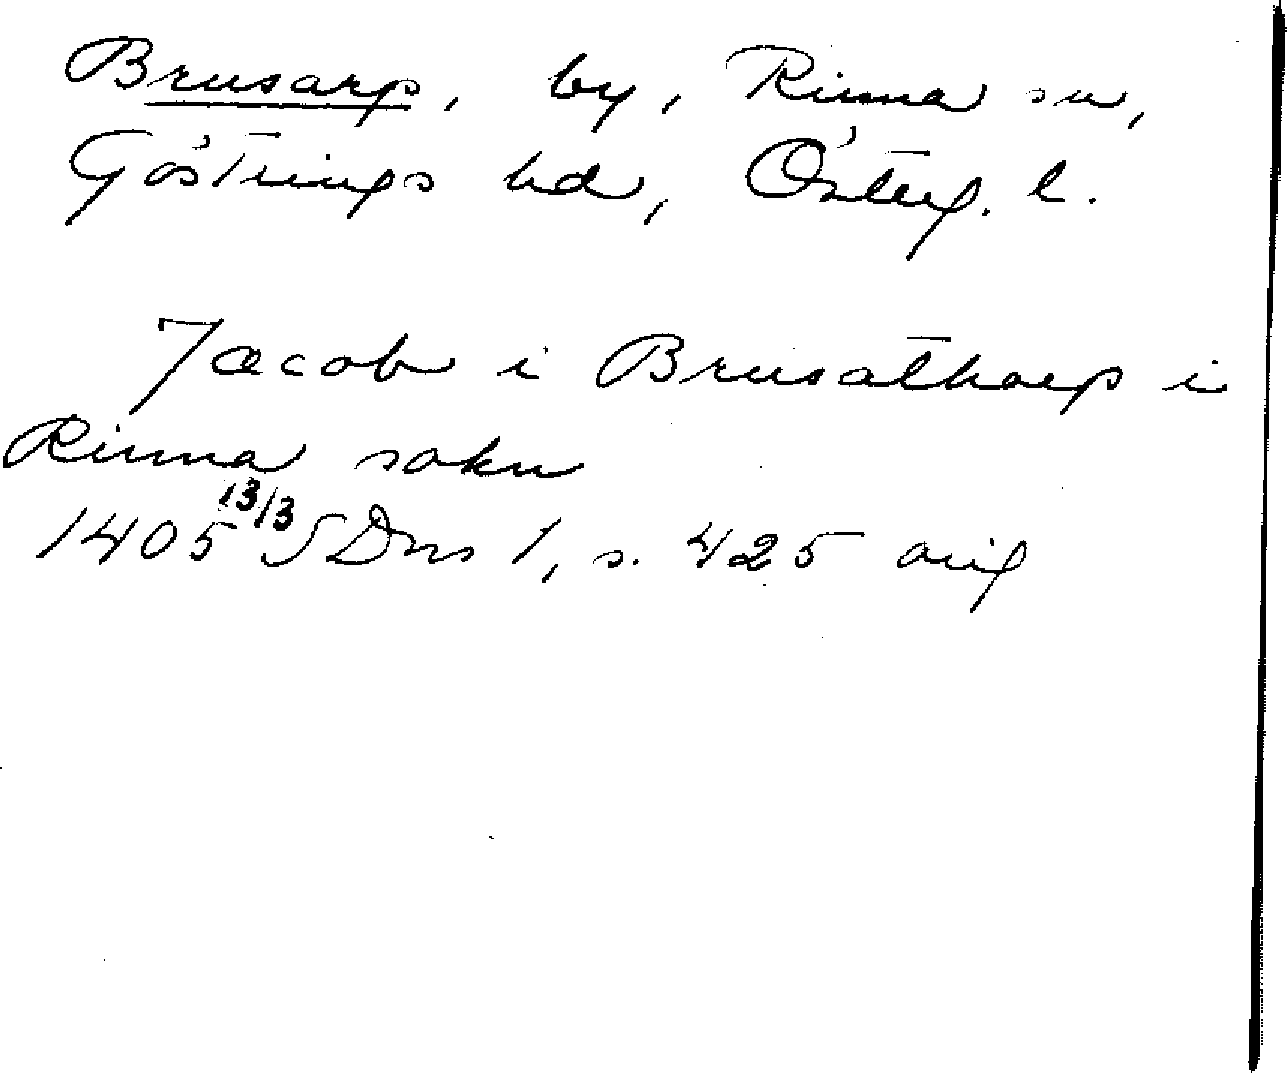 Brusarp, by, Rinna sn,
Göstrings hd, Österg. l.
Jacob i Brusathorp i
Rinna sokn
1405 13/3 SDns 1, s. 425 orig